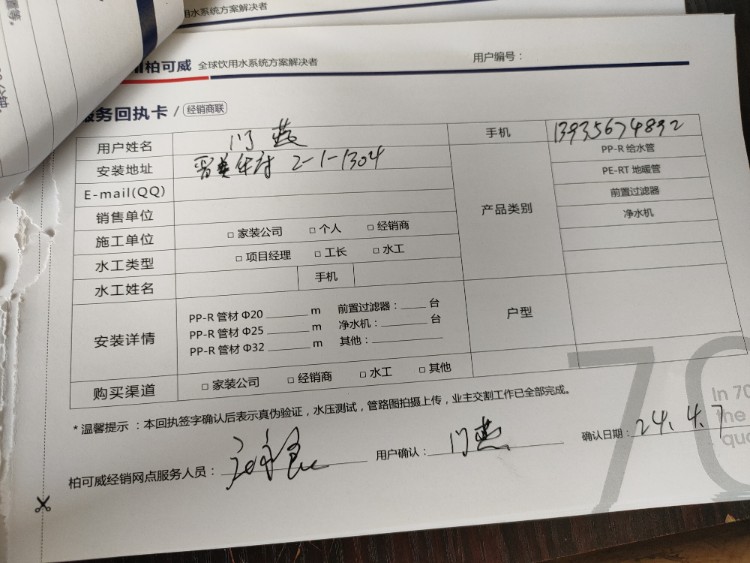 用水系统方案解决者
柏可威 全球饮用水系统方案解决者 用户编号：
服务回执卡 / 经销商联
用户姓名 门燕 手机 13935674892
安装地址 2-1-1304
E-mail(QQ)
销售单位
施工单位 □ 家装公司 □ 个人 □ 经销商
水工类型 □ 项目经理 □ 工长 □ 水工
水工姓名 手机
产品类别
PP-R 给水管
PE-RT 地暖管
前置过滤器
净水机
安装详情
PP-R 管材 Φ20 ______ m 前置过滤器：____ 台
PP-R 管材 Φ25 ______ m 净水机：____ 台
PP-R 管材 Φ32 ______ m 其他：______
户型
购买渠道 □ 家装公司 □ 经销商 □ 水工 □ 其他
* 温馨提示：本回执签字确认后表示真伪验证，水压测试，管路图拍摄上传，业主交割工作已全部完成。
柏可威经销网点服务人员： 用户确认： 门燕 确认日期： 24.4.7
70
In 70
the
qua